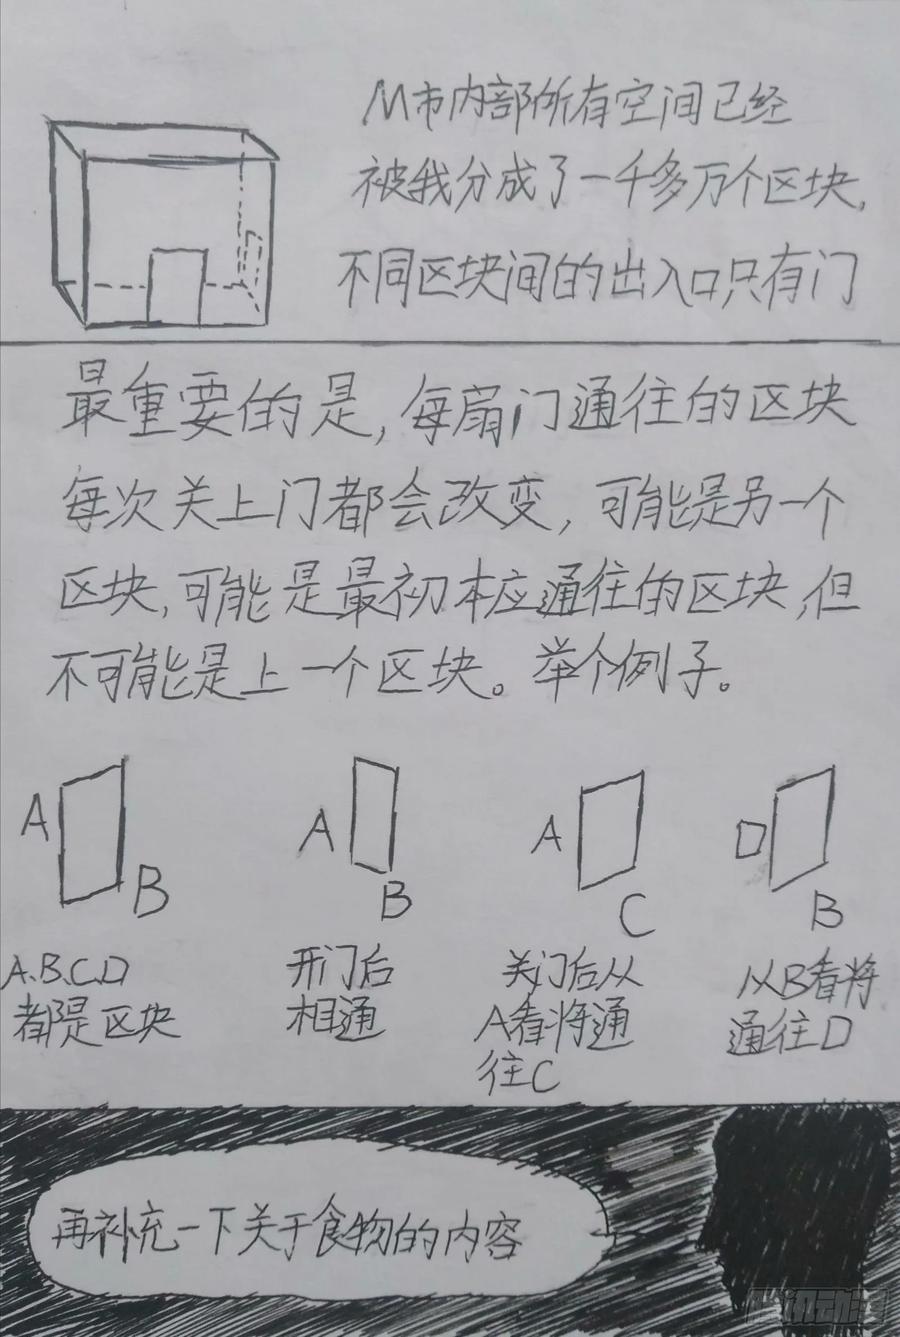 M市内部所有空间已经
被我分成了一千多万个区块,
不同区块间的出入口只有门
最重要的是,每扇门通往的区块
每次关上门都会改变,可能是另一个
区块,可能是最初本应通往的区块,但
不可能是上一个区块。举个例子。
A
B
A
B
A
C
D
B
A.B.C.D
都是区块
开门后
相通
关门后从
A看将通
往C
从B看将
通往D
再补充一下关于食物的内容
腾讯动漫